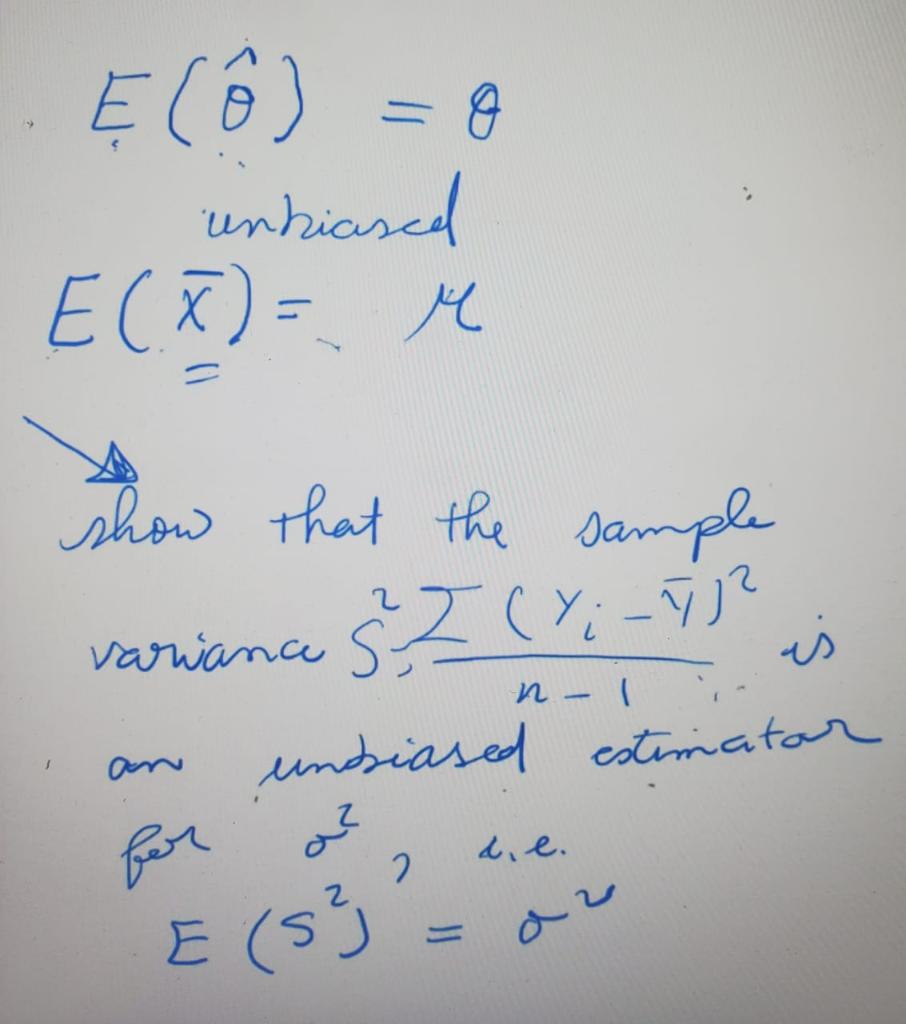 E(θ̂) = θ
unbiased
E(X̄) = μ
show that the sample
variance S², Σ(Yᵢ - Ȳ)² / n - 1 is
an unbiased estimator
for σ², i.e.
E(S²) = σ²